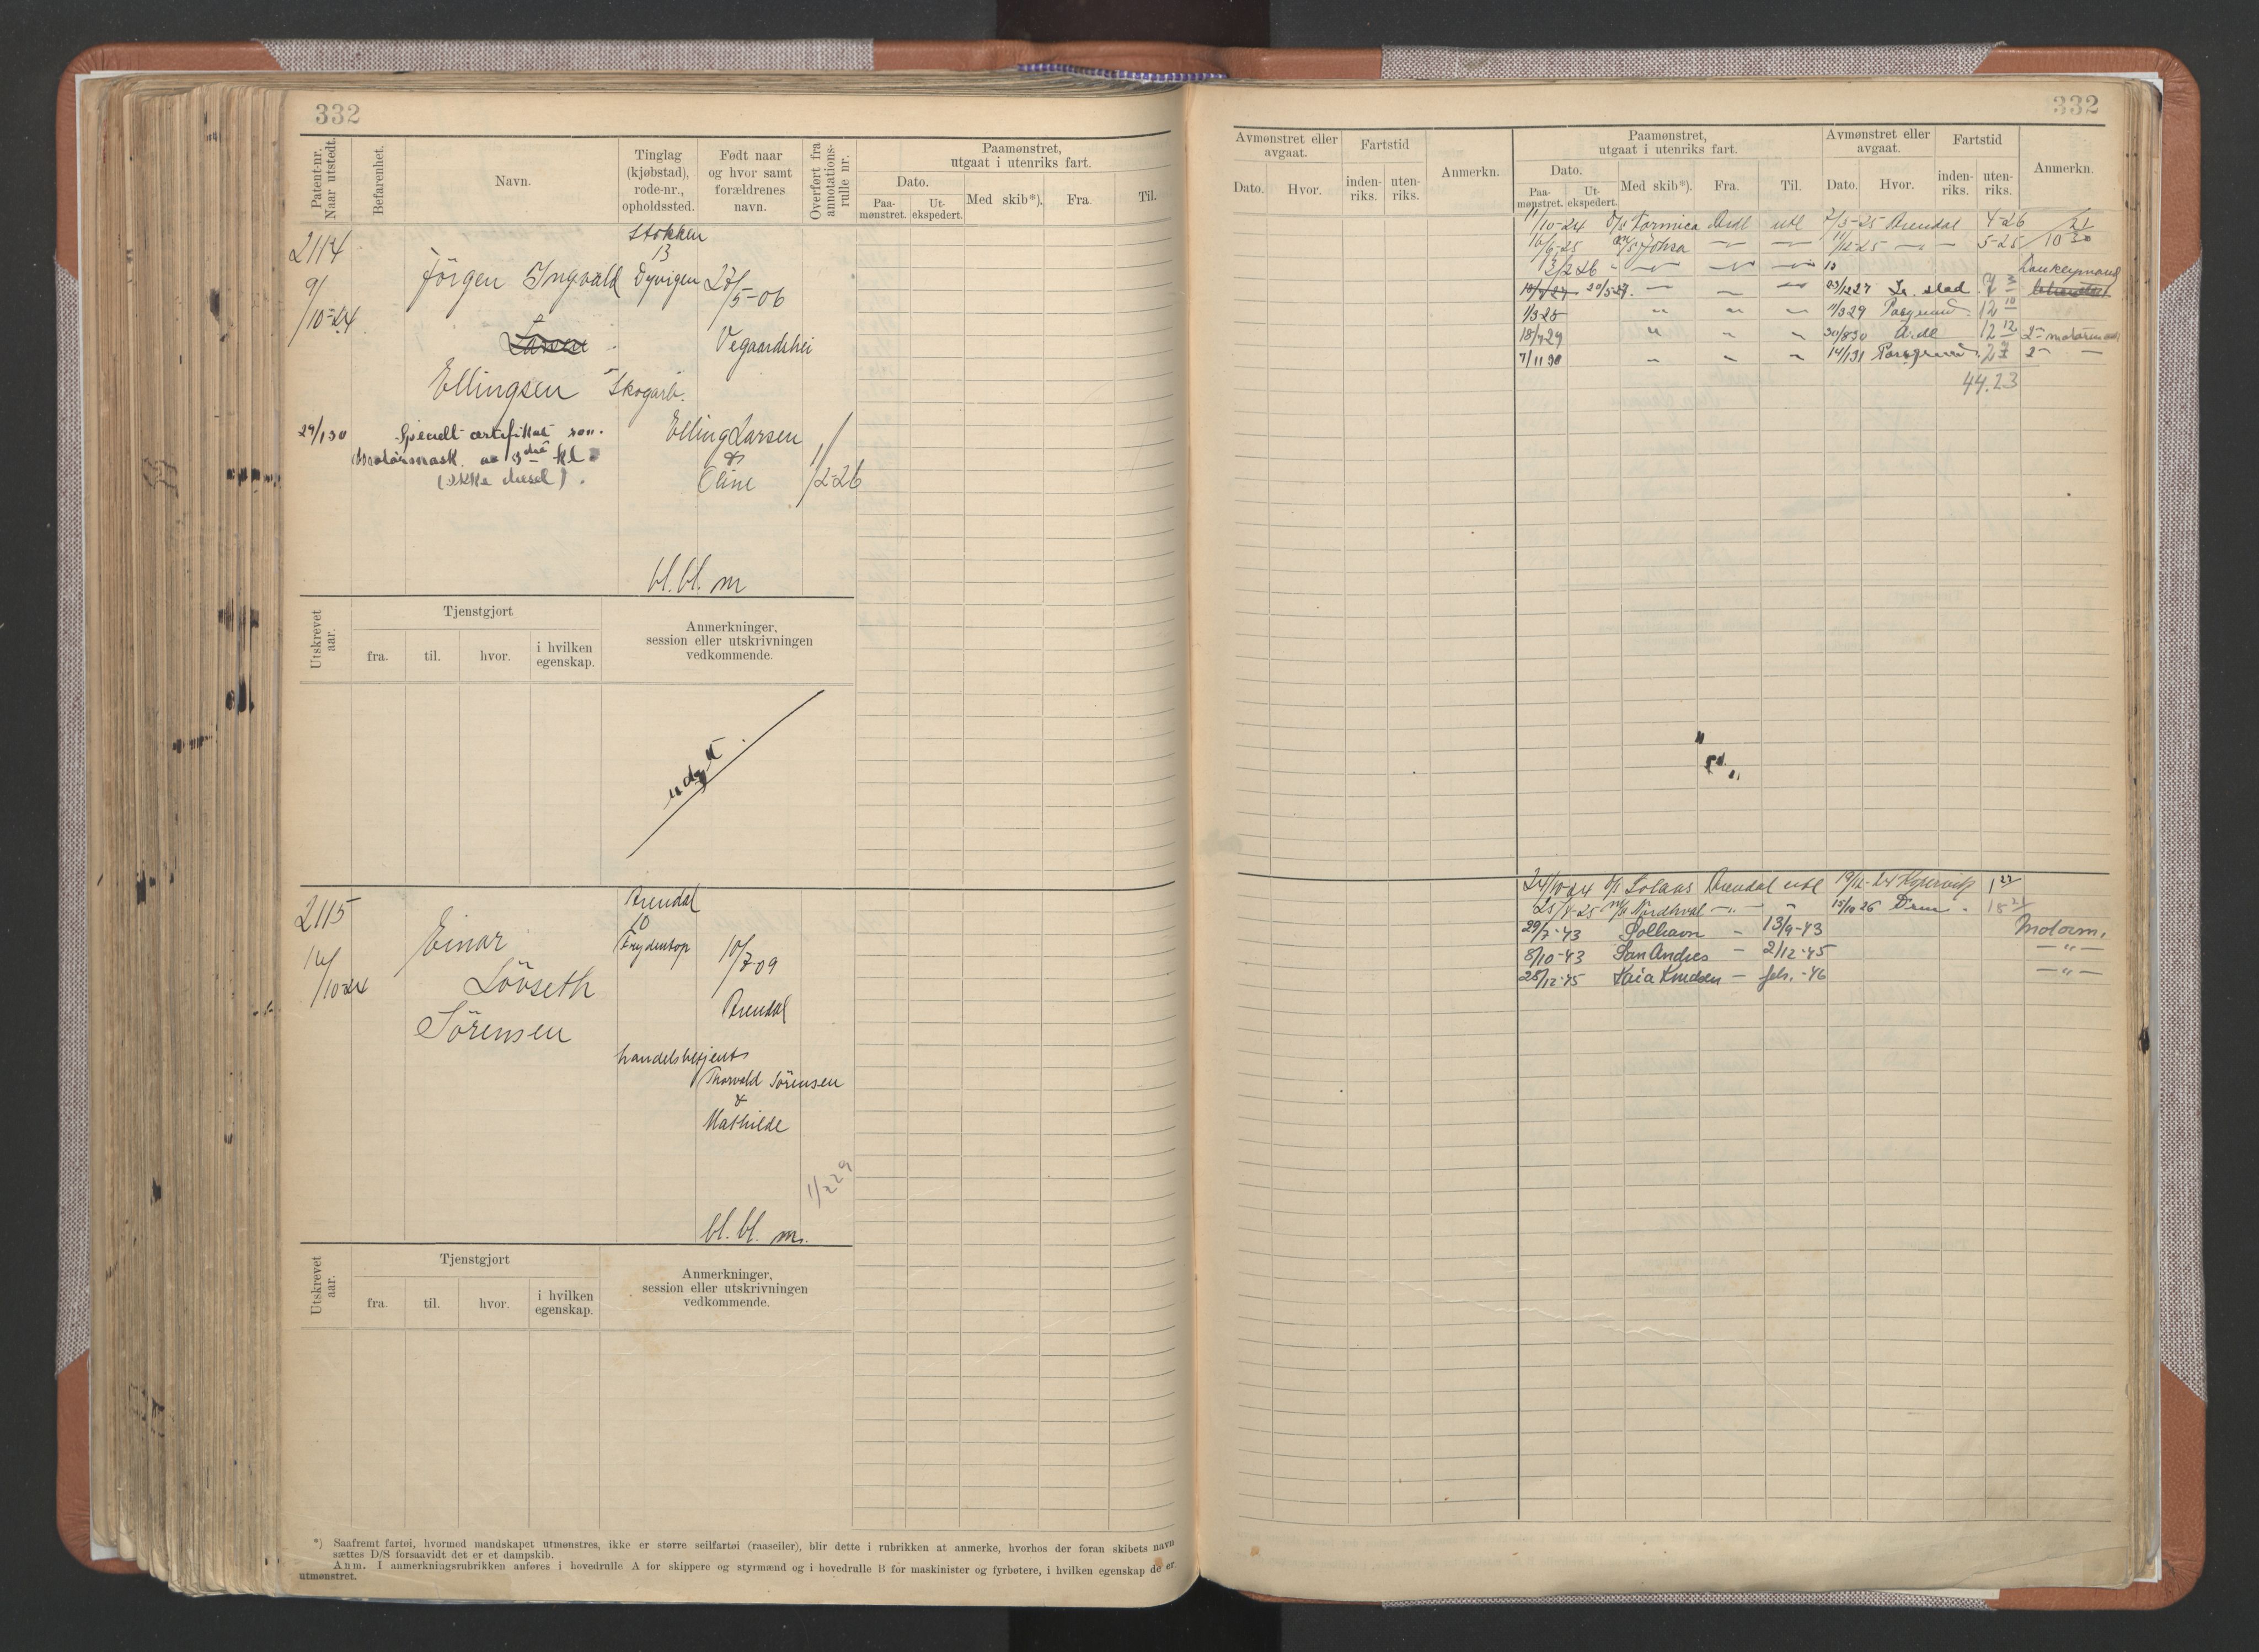 332
332
Patent-nr. Naar utstedt.
Befarenhet.
Navn.
Tinglag (kjøbstad), rode-nr., opholdssted.
Født naar og hvor samt forældrenes navn.
Overført fra annotations-rulle nr.
Paamønstret, utgaat i utenriks fart.
Dato.
Paa-mønstret.
Ut-ekspedert.
Med skib*).
Fra.
Til.
Avmønstret eller avgaat.
Dato.
Hvor.
Fartstid
inden-riks.
uten-riks.
Anmerkn.
Paamønstret, utgaat i utenriks fart.
Dato.
Paa-mønstret.
Ut-ekspedert.
Med skib*).
Fra.
Til.
Avmønstret eller avgaat.
Dato.
Hvor.
Fartstid
inden-riks.
uten-riks.
Anmerkn.
2114
9/10-24
Jörgen Ingvald
Larsen
Ellingsen
Stokken
13
Dyvigen
27/5-06
Vegaardshei
Skogarb.
Elling Larsen
&
Oline
1/2-26
29/1 30 Specielt certifikat som
Motormask. av 3die kl.
(ikke diesel).
bl. bl. m
11/10-24 Formica Ardl utl 7/5-25 Arendal 4-26
16/6-25 m/s Johsa 11/12-25 5-25
13/2 26
Donkeymand
20/5-27 23/12 27
1/3 28 1/3 29 Porsgrund 12 10
18/4 29 30/8 30 A.dl 12 12 2- motormand
7/11 30 14/1 31 Porsgrund 2-
44.23
Utskrevet aar.
Tjenstgjort
fra.
til.
hvor.
i hvilken egenskap.
Anmerkninger, session eller utskrivningen vedkommende.
udgt.
2115
14/10-24
Einar
Lövseth
Sörensen
Arendal
10
Frydentop
10/7-09
Arendal
handelsbetjent
Thorvald Sörensen
&
Mathilde
1/2 29
bl. bl. m.
24/10-24 Solaas Arendal utl 19/12-24 Kopervik 1 27
25/4-25 m/s Nordhval 15/10 26 Drm.
29/7-43 Solhavn - 13/9-43 Motorm.
8/10-43 San Andres - 2/12-45 - " -
28/12-45 Kaia Knudsen - feb.-46 - " -
Utskrevet aar.
Tjenstgjort
fra.
til.
hvor.
i hvilken egenskap.
Anmerkninger, session eller utskrivningen vedkommende.
*) Saafremt fartøi, hvormed mandskapet utmønstres, ikke er større seilfartøi (raaseiler), blir dette i rubrikken at anmerke, hvorhos der foran skibets navn
sættes D/S forsaavidt det er et dampskib.
Anm. I anmerkningsrubrikken anføres i hovedrulle A for skippere og styrmænd og i hovedrulle B for maskinister og fyrbøtere, i hvilken egenskap de er
utmønstret.